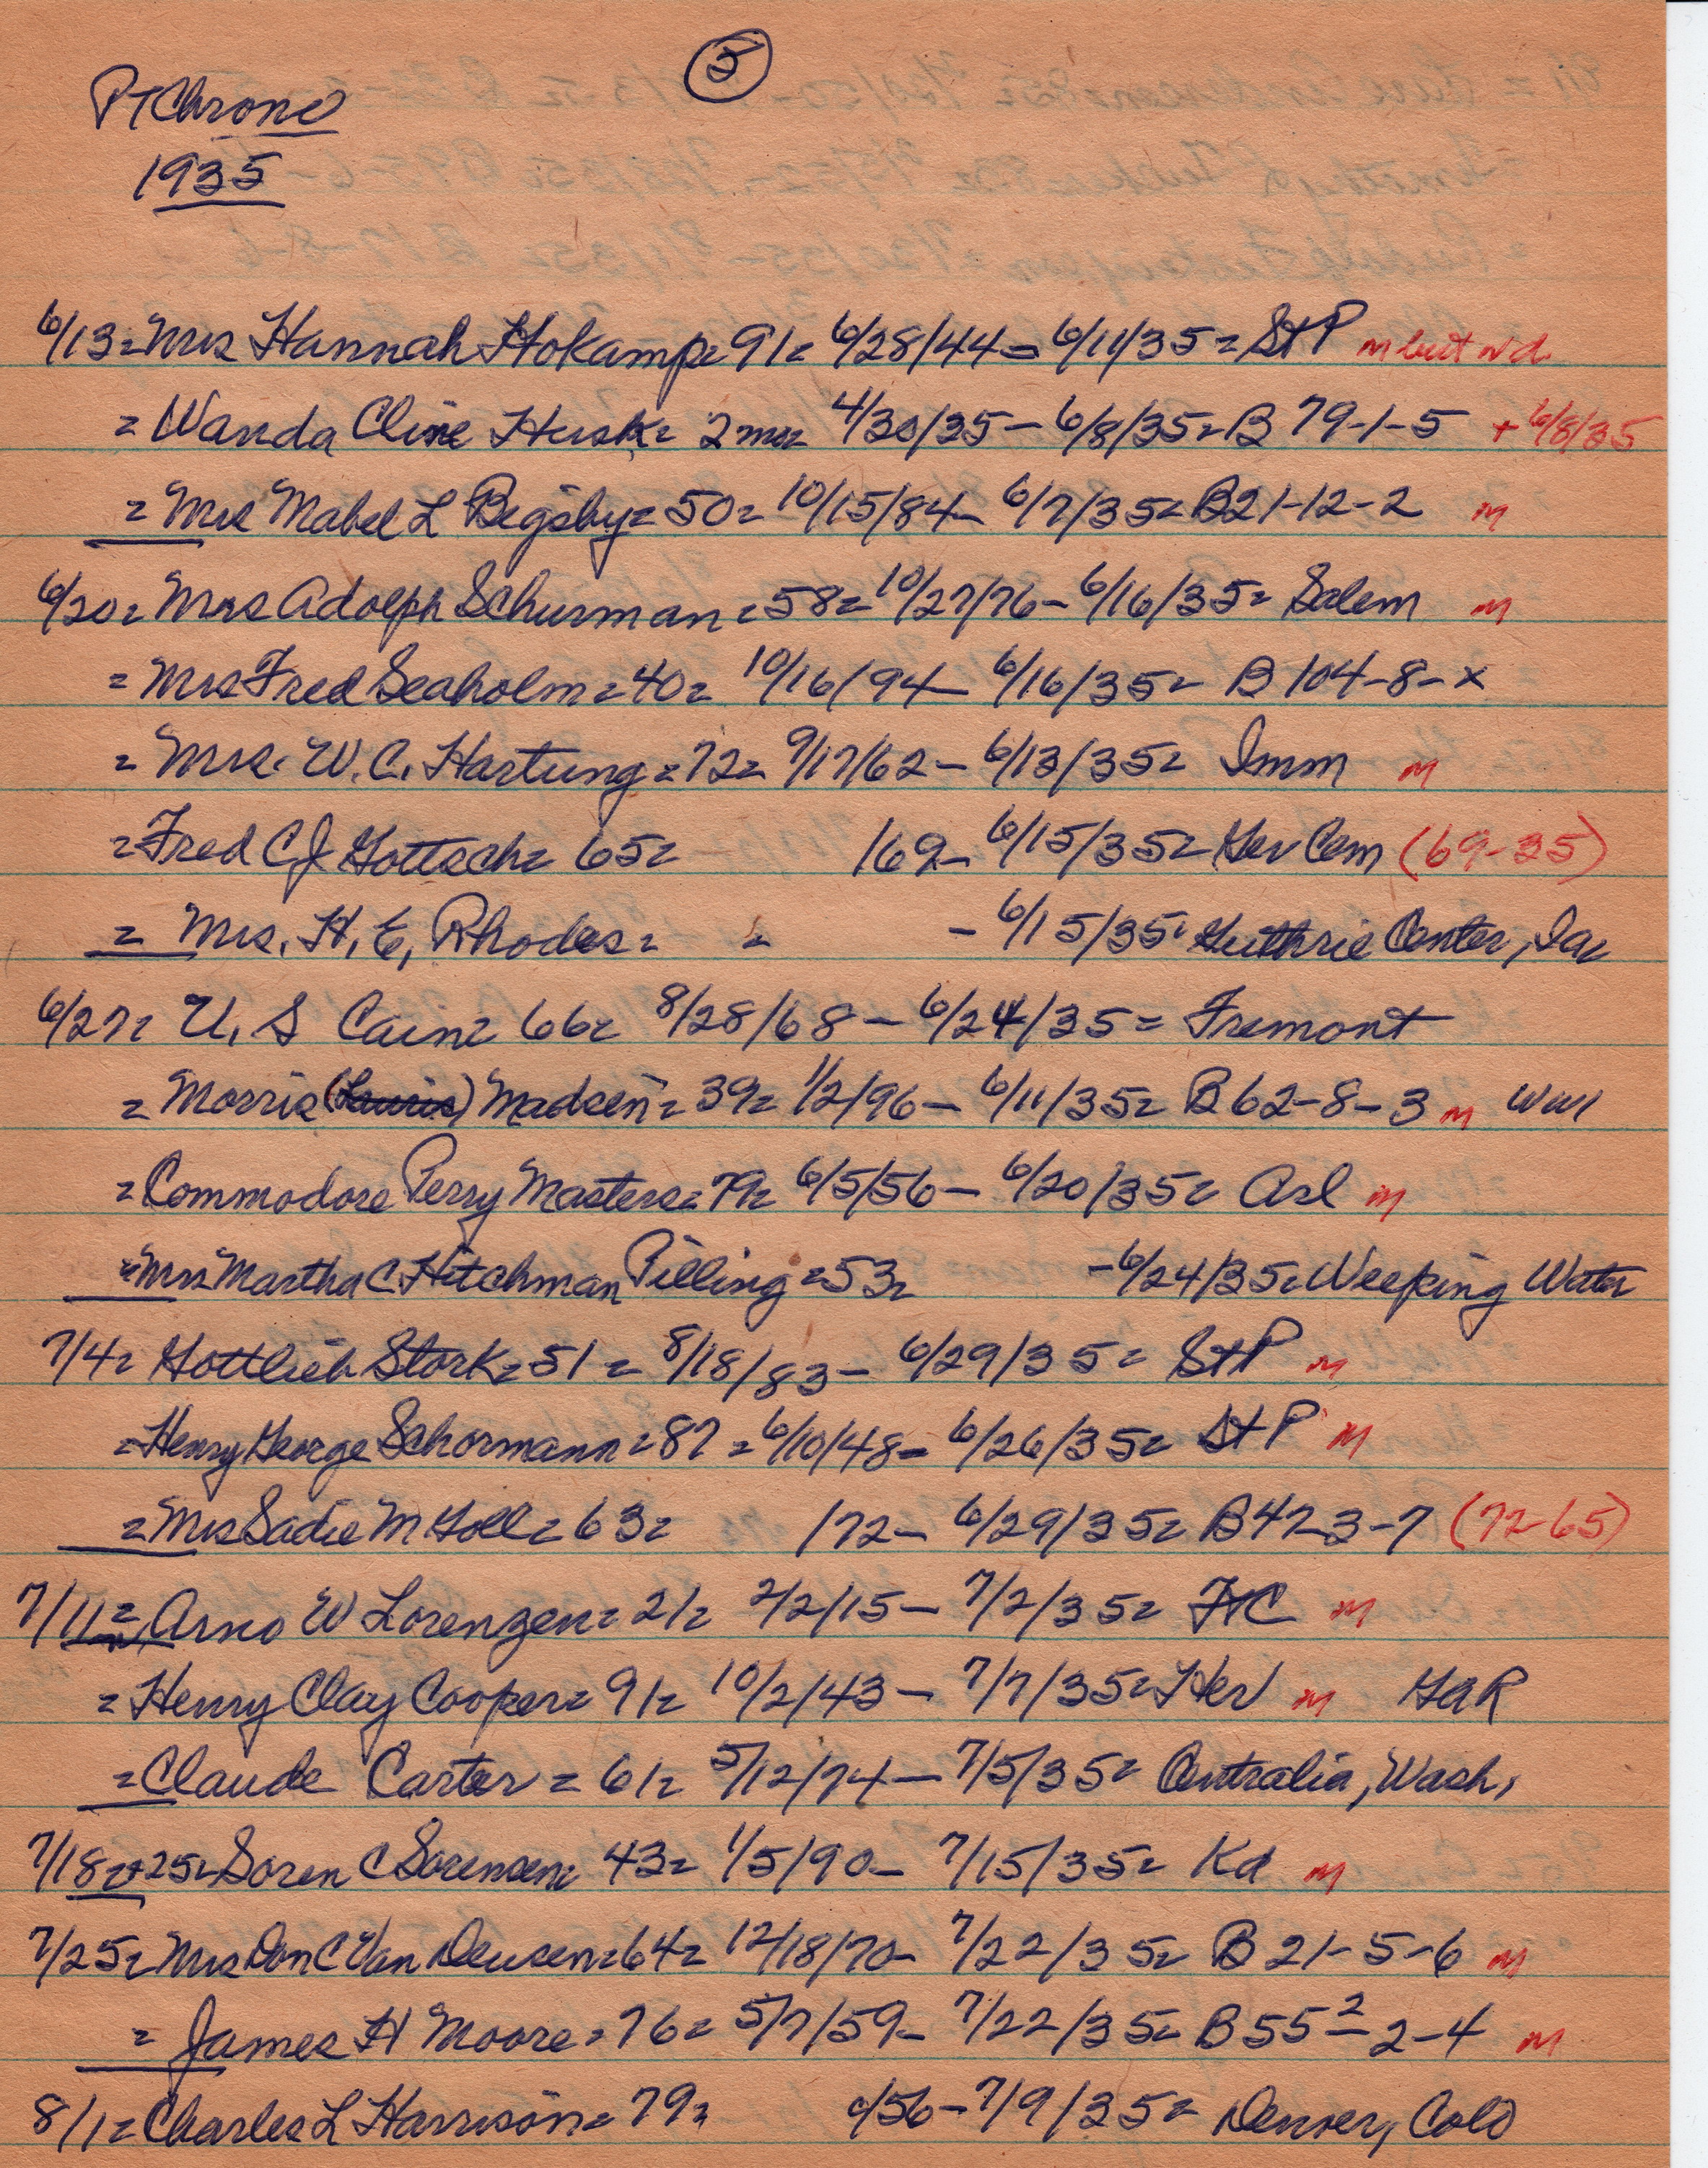 5
PTChrono
1935
6/13= Mrs Hannah Hokamp= 91= 6/28/44- 6/11/35= StP m but nd
= Wanda Cline Husk= 2mo= 4/30/35- 6/8/35= B 79-1-5 + 6/8/35
= Mrs Mabel L Bigsby= 50= 10/15/84- 6/7/35= B21-12-2 m
6/20= Mrs Adolph Schurman= 58= 10/27/76- 6/16/35= Salem m
= Mrs Fred Seaholm= 40= 10/16/94- 6/16/35= B 104-8-x
= Mrs. W.C. Hartung= 72= 9/17/62- 6/13/35= Imm m
= Fred CJ Gottsch= 65= 169- 6/15/35= Ger Cem (69-35)
= Mrs. H.E. Rhodes= = - 6/15/35= Guthrie Center, Ia=
6/27= U. S Cain= 66= 8/28/68- 6/24/35= Fremont
= Morris (Lauris) Madsen= 39= 1/2/96- 6/11/35= B 62-8-3 m WWI
= Commodore Perry Masters= 79= 6/5/56- 6/20/35= Arl m
= Mrs Martha C Hitchman Pilling= 53= - 6/24/35= Weeping Water
7/4= Gottlieb Stork= 51= 8/18/83- 6/29/35= StP m
= Henry George Schormann= 87= 6/10/48- 6/26/35= StP m
= Mrs Sadie M Goll= 63= 172- 6/29/35= B47-3-7 (72-65)
7/11= Arno W Lorenzen= 21= 2/2/15- 7/2/35= FtC m
= Henry Clay Cooper= 91= 10/2/43- 7/7/35= Her m GAR
= Claude Carter= 61= 5/12/74- 7/5/35= Centralia, Wash,
7/18=+25= Soren C Sorensen= 43= 1/5/90- 7/15/35= Kd m
7/25= Mrs Don C Van Deusen= 64= 12/18/70- 7/22/35= B 21-5-6 m
= James H Moore= 76= 5/7/59- 7/22/35= B 55²-2-4 m
8/1= Charles L Harrison= 79= c/56- 7/9/35= Denver, Colo